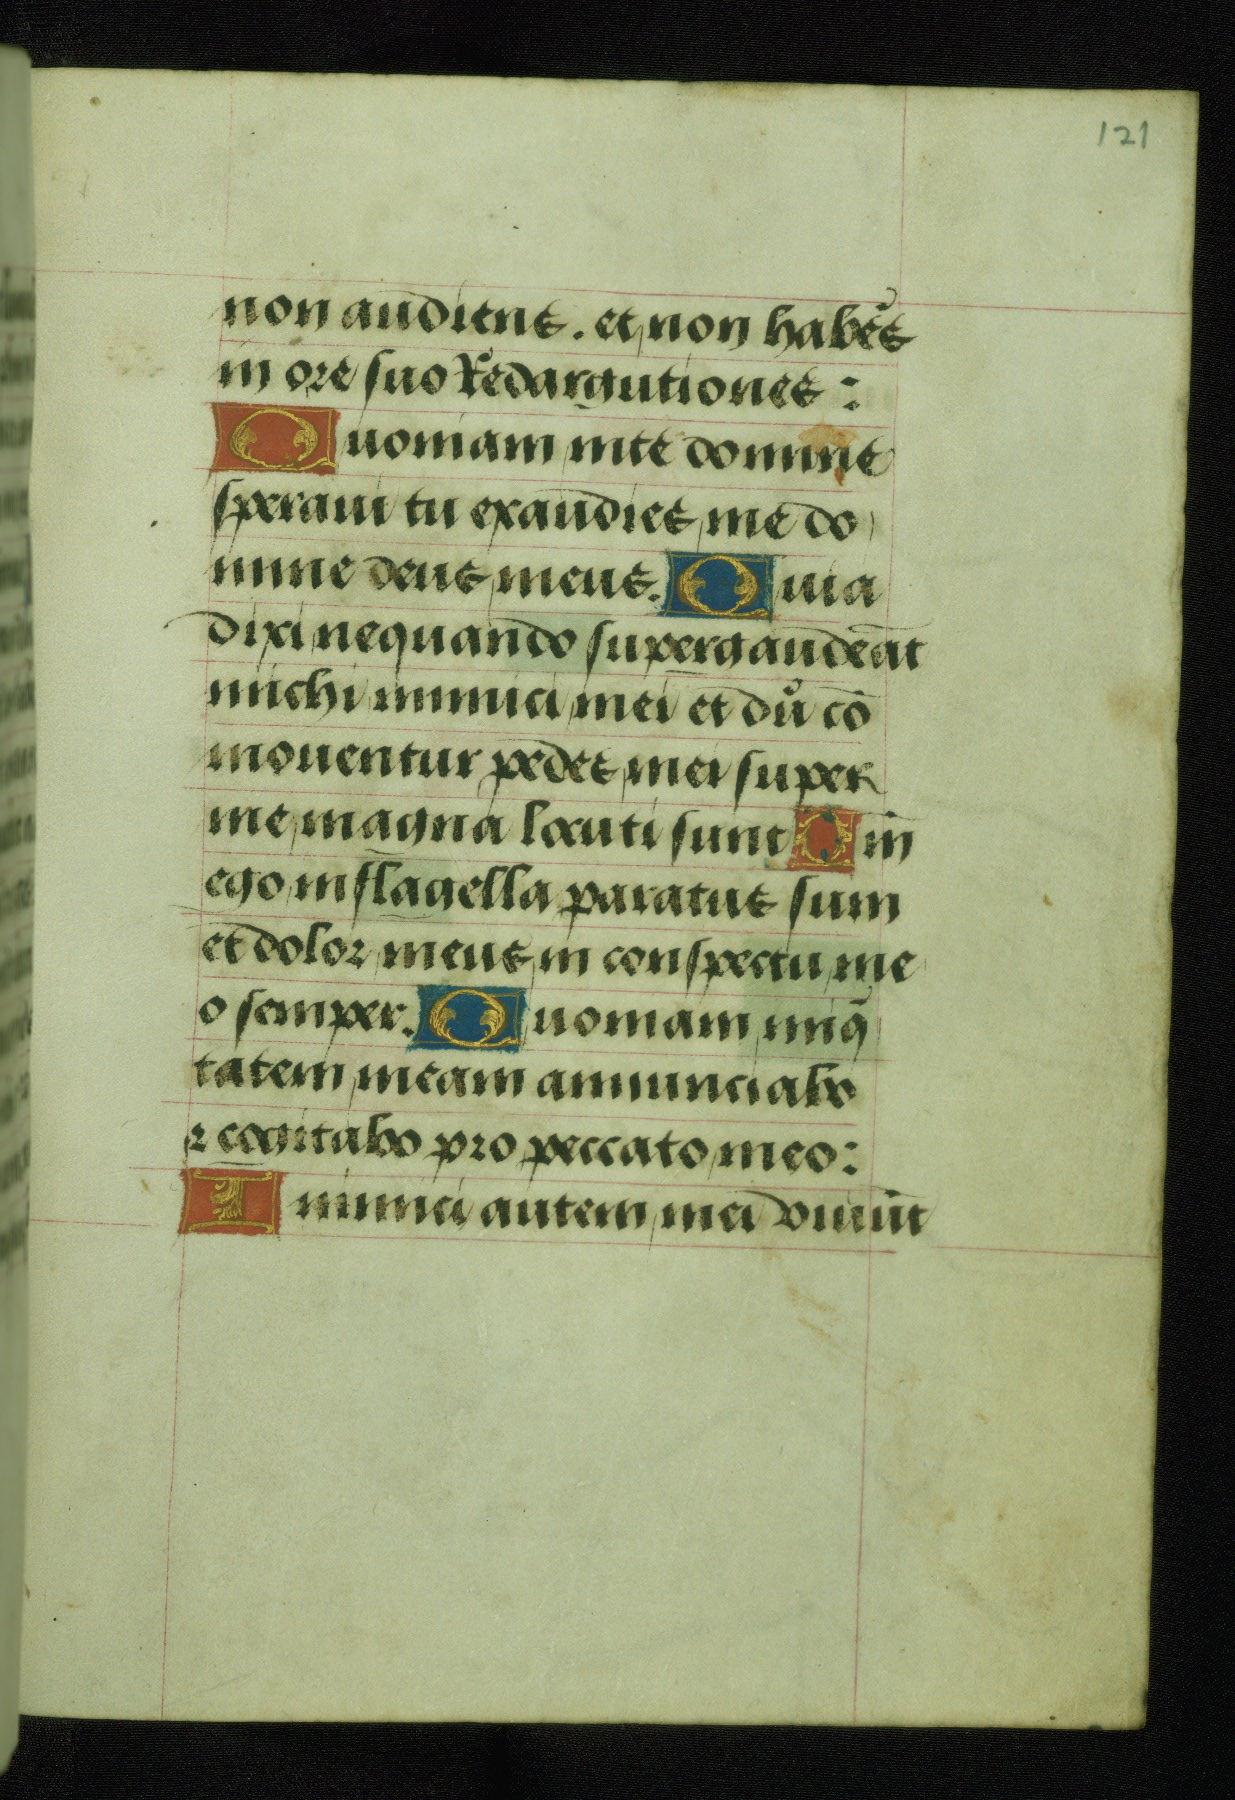 121
non audiens. et non habēs
in ore suo Redargutiones:
Quoniam in te domine
speraui tu exaudies me do
mine deus meus. Quia
dixi nequando supergaudeāt
michi inimici mei et dū cō
mouentur pedes mei super
me magna locuti sunt Qm̄
ego in flagella paratus sum
et dolor meus in conspectu me
o semper. Quoniam iniq̄
tatem meam annunciabo
⁊ cogitabo pro peccato meo:
Inimici autem mei viuūt